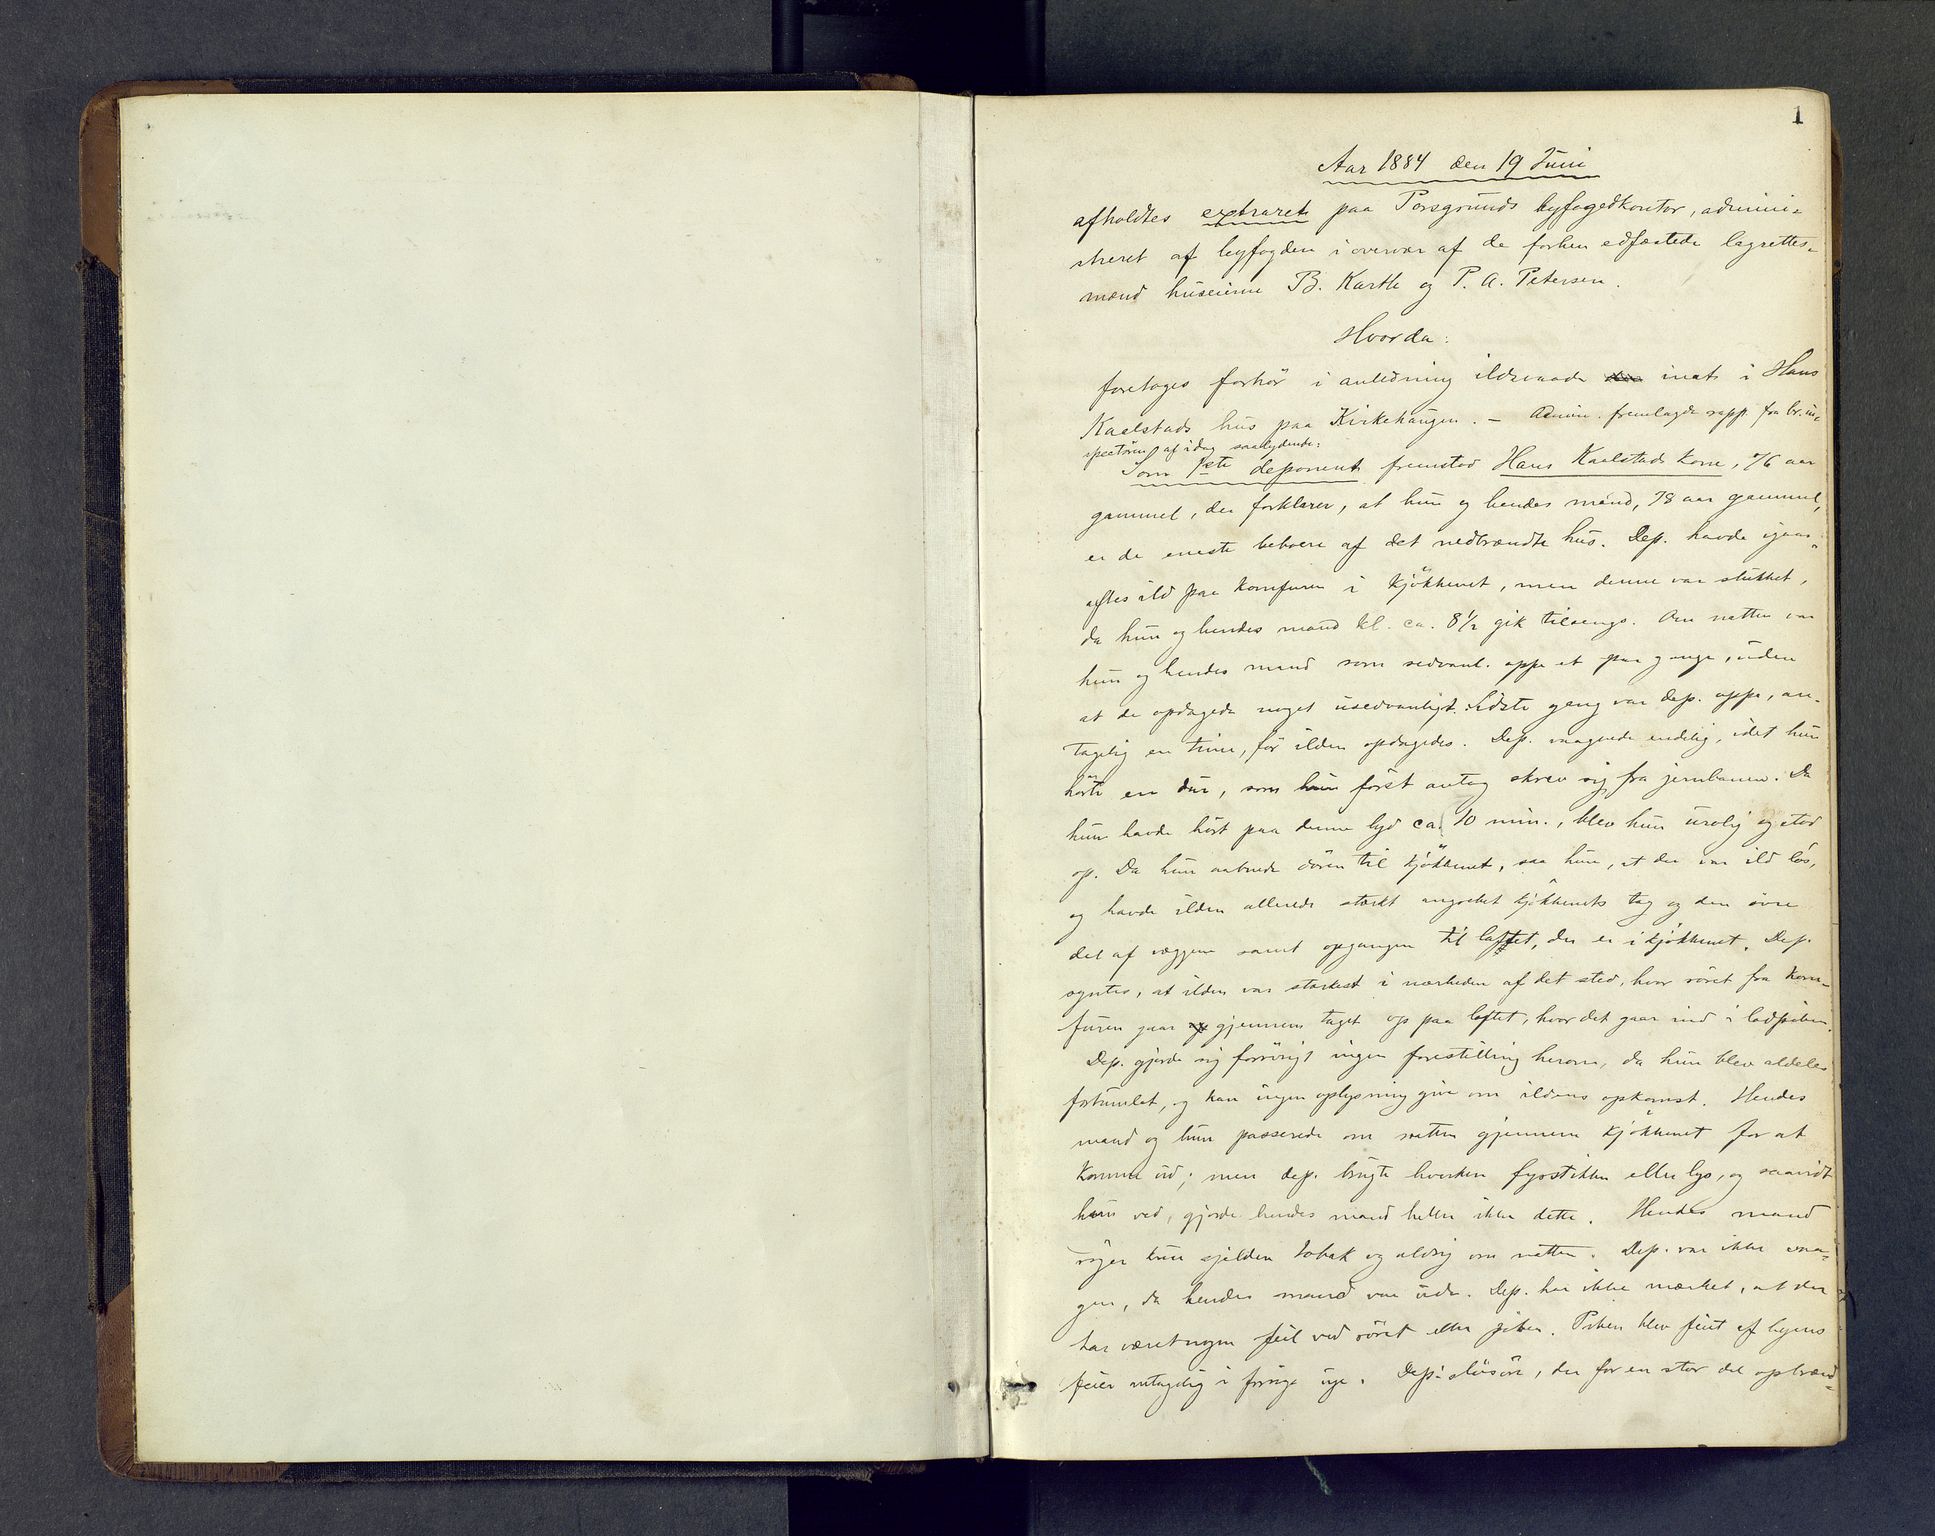 1
Aar 1884 den 19 Juni
afholdtes extraret paa Porsgrunds byfogedkontor, admini-
streret af byfogden i overvær af de forhen edfæstede lagrettes-
mænd huseierne B. Karth og P. A. Petersen.
Hvorda:
foretoges forhör i anledning ildsvaade inat i Hans
Kaelstads hus paa Kirkehaugen. – Admin. fremlagde rapp. fra br.in-
spectören af idag saalydende:
Som 1ste deponent fremstod Hans Kaelstads kone, 76 aar
gammel, der forklarer, at hun og hendes mand, 78 aar gammel,
er de eneste beboere af det nedbrændte hus. Dep. havde igaar
aftes ild paa komfuren i kjökkenet, men denne var slukket,
da hun og hendes mand kl. ca. 8 1/2 gik tilsengs. Om natten var
hun og hendes mand som sedvanl. oppe et par gange, uden
at de opdagede noget usedvanligt. Sidste gang var dep. oppe, an-
tagelig en time, för ilden opdagedes. Dep. vaagnede endelig, idet hun
hörte en dur, som hun först antog skrev sig fra jernbanen. Da
hun havde hört paa denne lyd ca. 10 min., blev hun urolig og stod
op. Da hun aabnede dören til kjökkenet, saa hun, at der var ild lös,
og havde ilden allerede stærkt angrebet kjökkenets tag og den övre
del af væggene samt opgangen til loftet, der er i kjökkenet. Dep.
syntes, at ilden var stærkest i nærheden af det sted, hvor röret fra kom-
furen gaar gjennem taget op paa loftet, hvor det gaar ind i lodpiben.
Dep. gjorde sig forövrigt ingen forestilling herom, da hun blev aldeles
fortumlet, og kan ingen oplysning give om ildens opkomst. Hendes
mand og hun passerede om natten gjennem kjökkenet for at
komme ud; men dep. brugte hverken fyrstikker eller lys, og saavidt
hun ved, gjorde hendes mand heller ikke dette. Hendes mand
röger kun sjelden tobak og aldrig om natten. Dep. var ikke vaa-
gen, da hendes mand var ude. Dep. har ikke mærket, at der
har været nogen feil ved röret eller piben. Piben blev feiet af byens
feier antagelig i forrige uge. Dep.s lösöre, der for en stor del opbrænd-